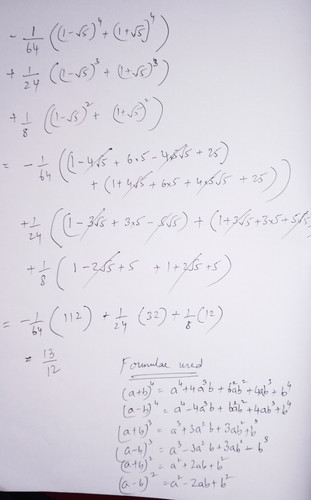 - 1/64 ((1-√5)⁴ + (1+√5)⁴)
+ 1/24 ((1-√5)³ + (1+√5)³)
+ 1/8 ((1-√5)² + (1+√5)²)
= - 1/64 ((1 - 4√5 + 6×5 - 4×5√5 + 25)
+ (1 + 4√5 + 6×5 + 4×5√5 + 25))
+ 1/24 ((1 - 3√5 + 3×5 - 5√5) + (1 + 3√5 + 3×5 + 5√5)
+ 1/8 (1 - 2√5 + 5 + 1 + 2√5 + 5)
= - 1/64 (112) + 1/24 (32) + 1/8 (12)
= 13/12
Formulae used
(a+b)⁴ = a⁴ + 4a³b + 6a²b² + 4ab³ + b⁴
(a-b)⁴ = a⁴ - 4a³b + 6a²b² - 4ab³ + b⁴
(a+b)³ = a³ + 3a²b + 3ab² + b³
(a-b)³ = a³ - 3a²b + 3ab² - b³
(a+b)² = a² + 2ab + b²
(a-b)² = a² - 2ab + b²